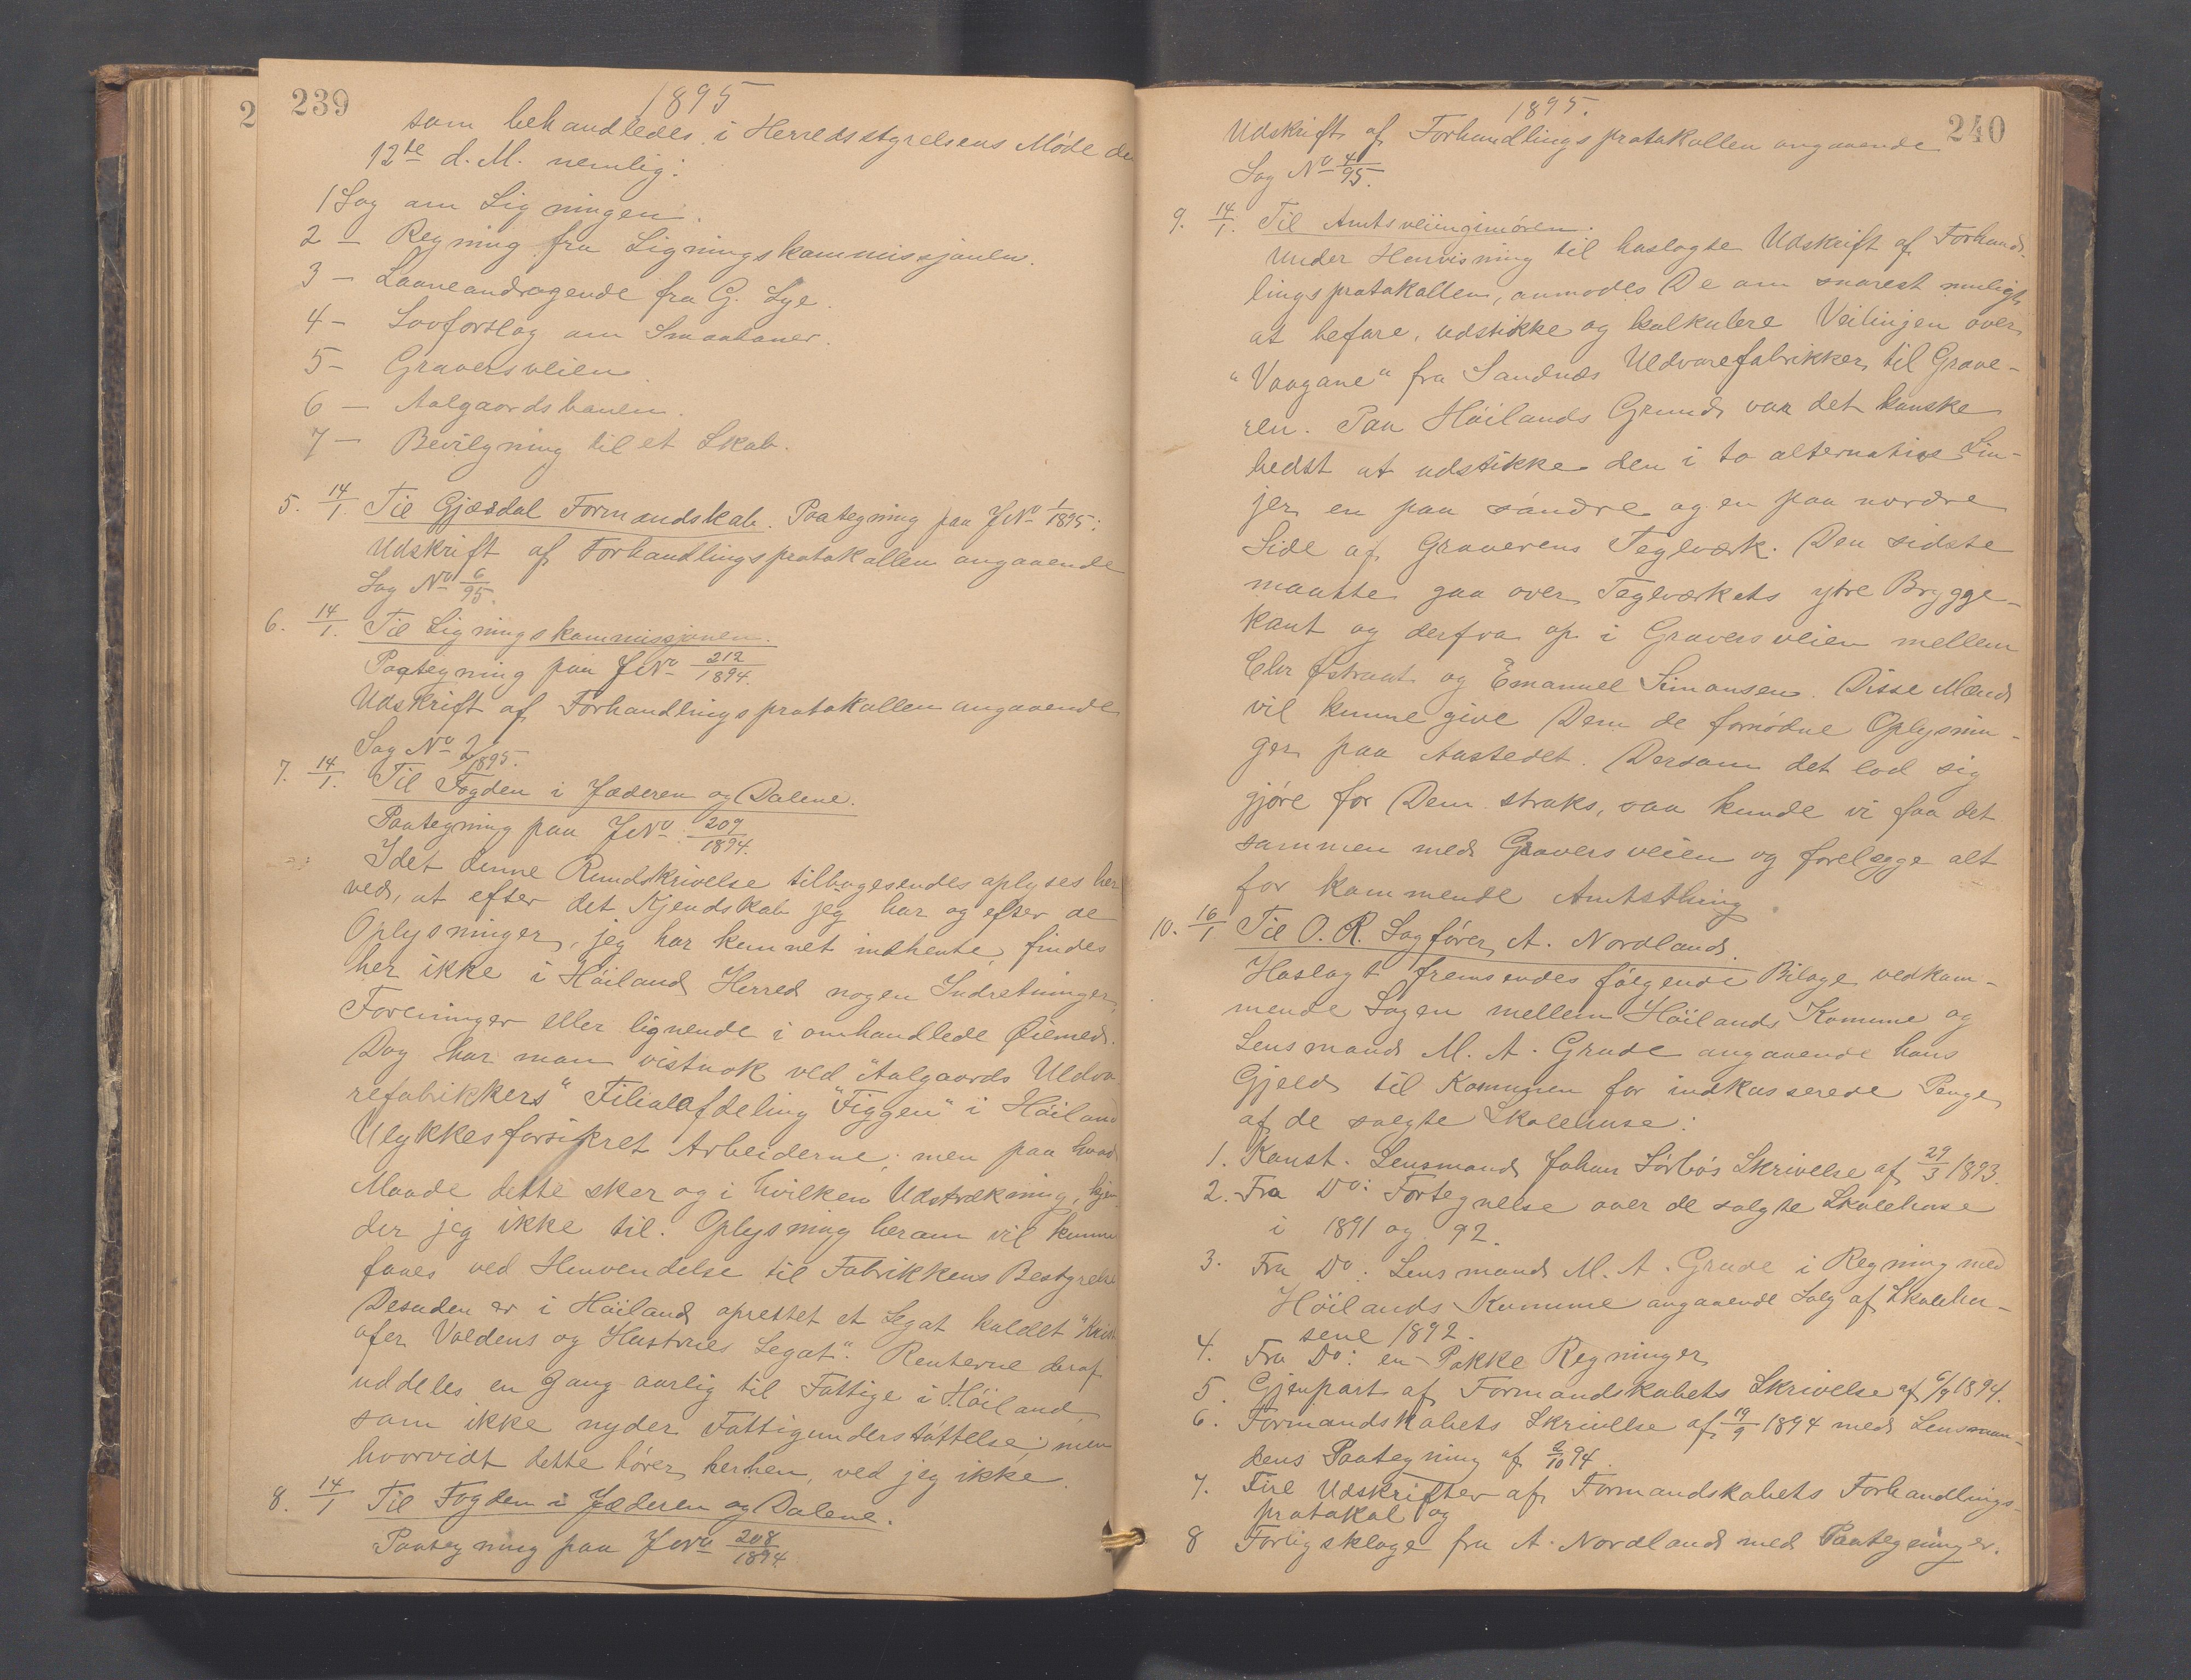 239
1895
som behandledes i Herredsstyrelsens Møde de
12te d. M. nemlig:
1 Sag om Ligningen.
2 — Regning fra Ligningskommissjonen.
3 — Laaneandragende fra G. Lye.
4 — Lovforslag om Smaabaner.
5 — Graversveien
6 — Aalgaardsbanen.
7 — Bevilgning til et Skab.
5. 14/1. Til Gjæsdal Formandskab. Paategning paa J.No 1/1895:
Udskrift af Forhandlingsprotokollen angaaende
Sag No 6/95.
6. 14/1. Til Ligningskommissjonen.
Paategning paa J.No 212/1894.
Udskrift af Forhandlingsprotokollen angaaende
Sag No 2/1895.
7. 14/1. Til Fogden i Jæderen og Dalene.
Paategning paa J.No 209/1894.
Idet denne Rundskrivelse tilbagesendes oplyses her-
ved, at efter det Kjendskab jeg har og efter de
Oplysninger, jeg har kunnet indhente, findes
her ikke i Höiland Herred nogen Indretninger,
Foreninger eller lignende i omhandlede Øiemed.
Dog har man vistnok ved "Aalgaards Uldva-
refabrikkers" Filialafdeling "Figgen" i Höiland
Ulykkesforsikret Arbeiderne; men paa hvad
Maade dette sker og i hvilken Udstrækning, kjen-
der jeg ikke til. Oplysning herom vil kunne
faaes ved Henvendelse til Fabrikkens Bestyrelse
Desuden er i Höiland oprettet et Legat kaldet "Krist
ofer Voldens og Hustrues Legat". Renterne deraf
uddeles en Gang aarlig til Fattige i Höiland,
som ikke nyder Fattigunderstöttelse; men
hvorvidt dette hörer herhen, ved jeg ikke.
8. 14/1 Til Fogden i Jæderen og Dalene.
Paategning paa J.No 208/1894
240
1895.
Udskrift af Forhandlingsprotokollen angaaende
Sag No 4/95.
9. 14/1. Til Amtsveiinginiøren.
Under Henvisning til hoslagte Udskrift af Forhand-
lingsprotokollen, anmodes De om snarest muligt
at befare, udstikke og kalkulere Veilinjen over
"Vaagane" fra Sandnæs Uldvarefabrikker til Grave-
ren. Paa Höilands Grund var det kanske
bedst at udstikke den i to alternative Lin-
jer en paa söndre og en paa nordre
Side af Graverens Teglværk. Den sidste
maatte gaa over Teglværkets ytre Brygge-
kant og derfra op i Graversveien mellem
Chr Østraat og Emanuel Simonsen. Disse Mænd
vil kunne give Dem de fornödne Oplysnin-
ger paa Aastedet. Dersom det lod sig
gjöre for Dem straks, saa kunde vi faa det
sammen med Graversveien og forelægge alt
for kommende Amtsthing.
10. 16/1 Til O. R. Sagförer A. Nordland.
Hoslagt fremsendes fölgende Bilage vedkom-
mende Sagen mellem Höilands Komune og
Lensmand M. A. Grude angaaende hans
Gjeld til Komunen for indkasserede Penge
af de solgte Skolehuse:
1. Konst. Lensmand Johan Sörbös Skrivelse af 29/3 1893.
2. Fra Do: Fortegnelse over de solgte Skolehuse
i 1891 og 92.
3. Fra Do: Lensmand M. A. Grude i Regning med
Höilands Komune angaaende Salg af Skolehu-
sene 1892.
4. Fra Do: en Pakke Regninger
5. Gjenpart af Formandskabets Skrivelse af 6/9 1894.
6. Formandskabets Skrivelse af 19/9 1894 med Lensman-
dens Paategning af 2/10 94.
7. Fire Udskrifter af Formandskabets Forhandlings-
protokol og
8 Forligsklage fra A. Nordland med Paategninger.